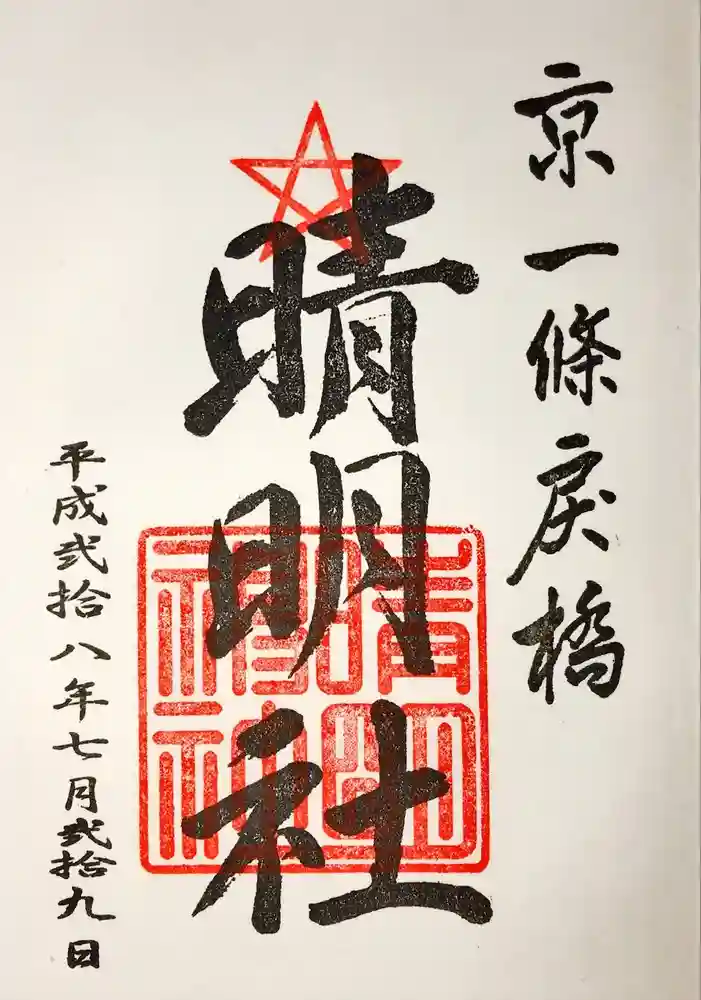 京一條戻橋
晴明社
平成弐拾八年七月弐拾九日